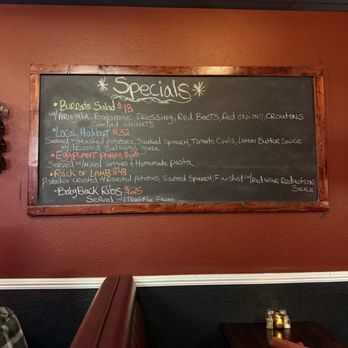 Specials
Burrata Salad $18
w/ Arugula, Balsamic Dressing, Red Beets, Red Onions, Croutons
Candied Walnuts
Local Halibut $32
Served w/ Mashed Potatoes, Sauteed Spinach, Tomato Coulis, Lemon Butter Sauce
w/ drizzled Balsamic Glaze
Eggplant Parm $26
Served w/ Mixed Veggies & Homemade Pasta
Rack of Lamb $48
Pistachio crusted w/ Roasted Potatoes, Sauteed Spinach, Finished w/ Red Wine Reduction
Sauce
Baby Back Ribs $25
Served w/ Truffle Fries